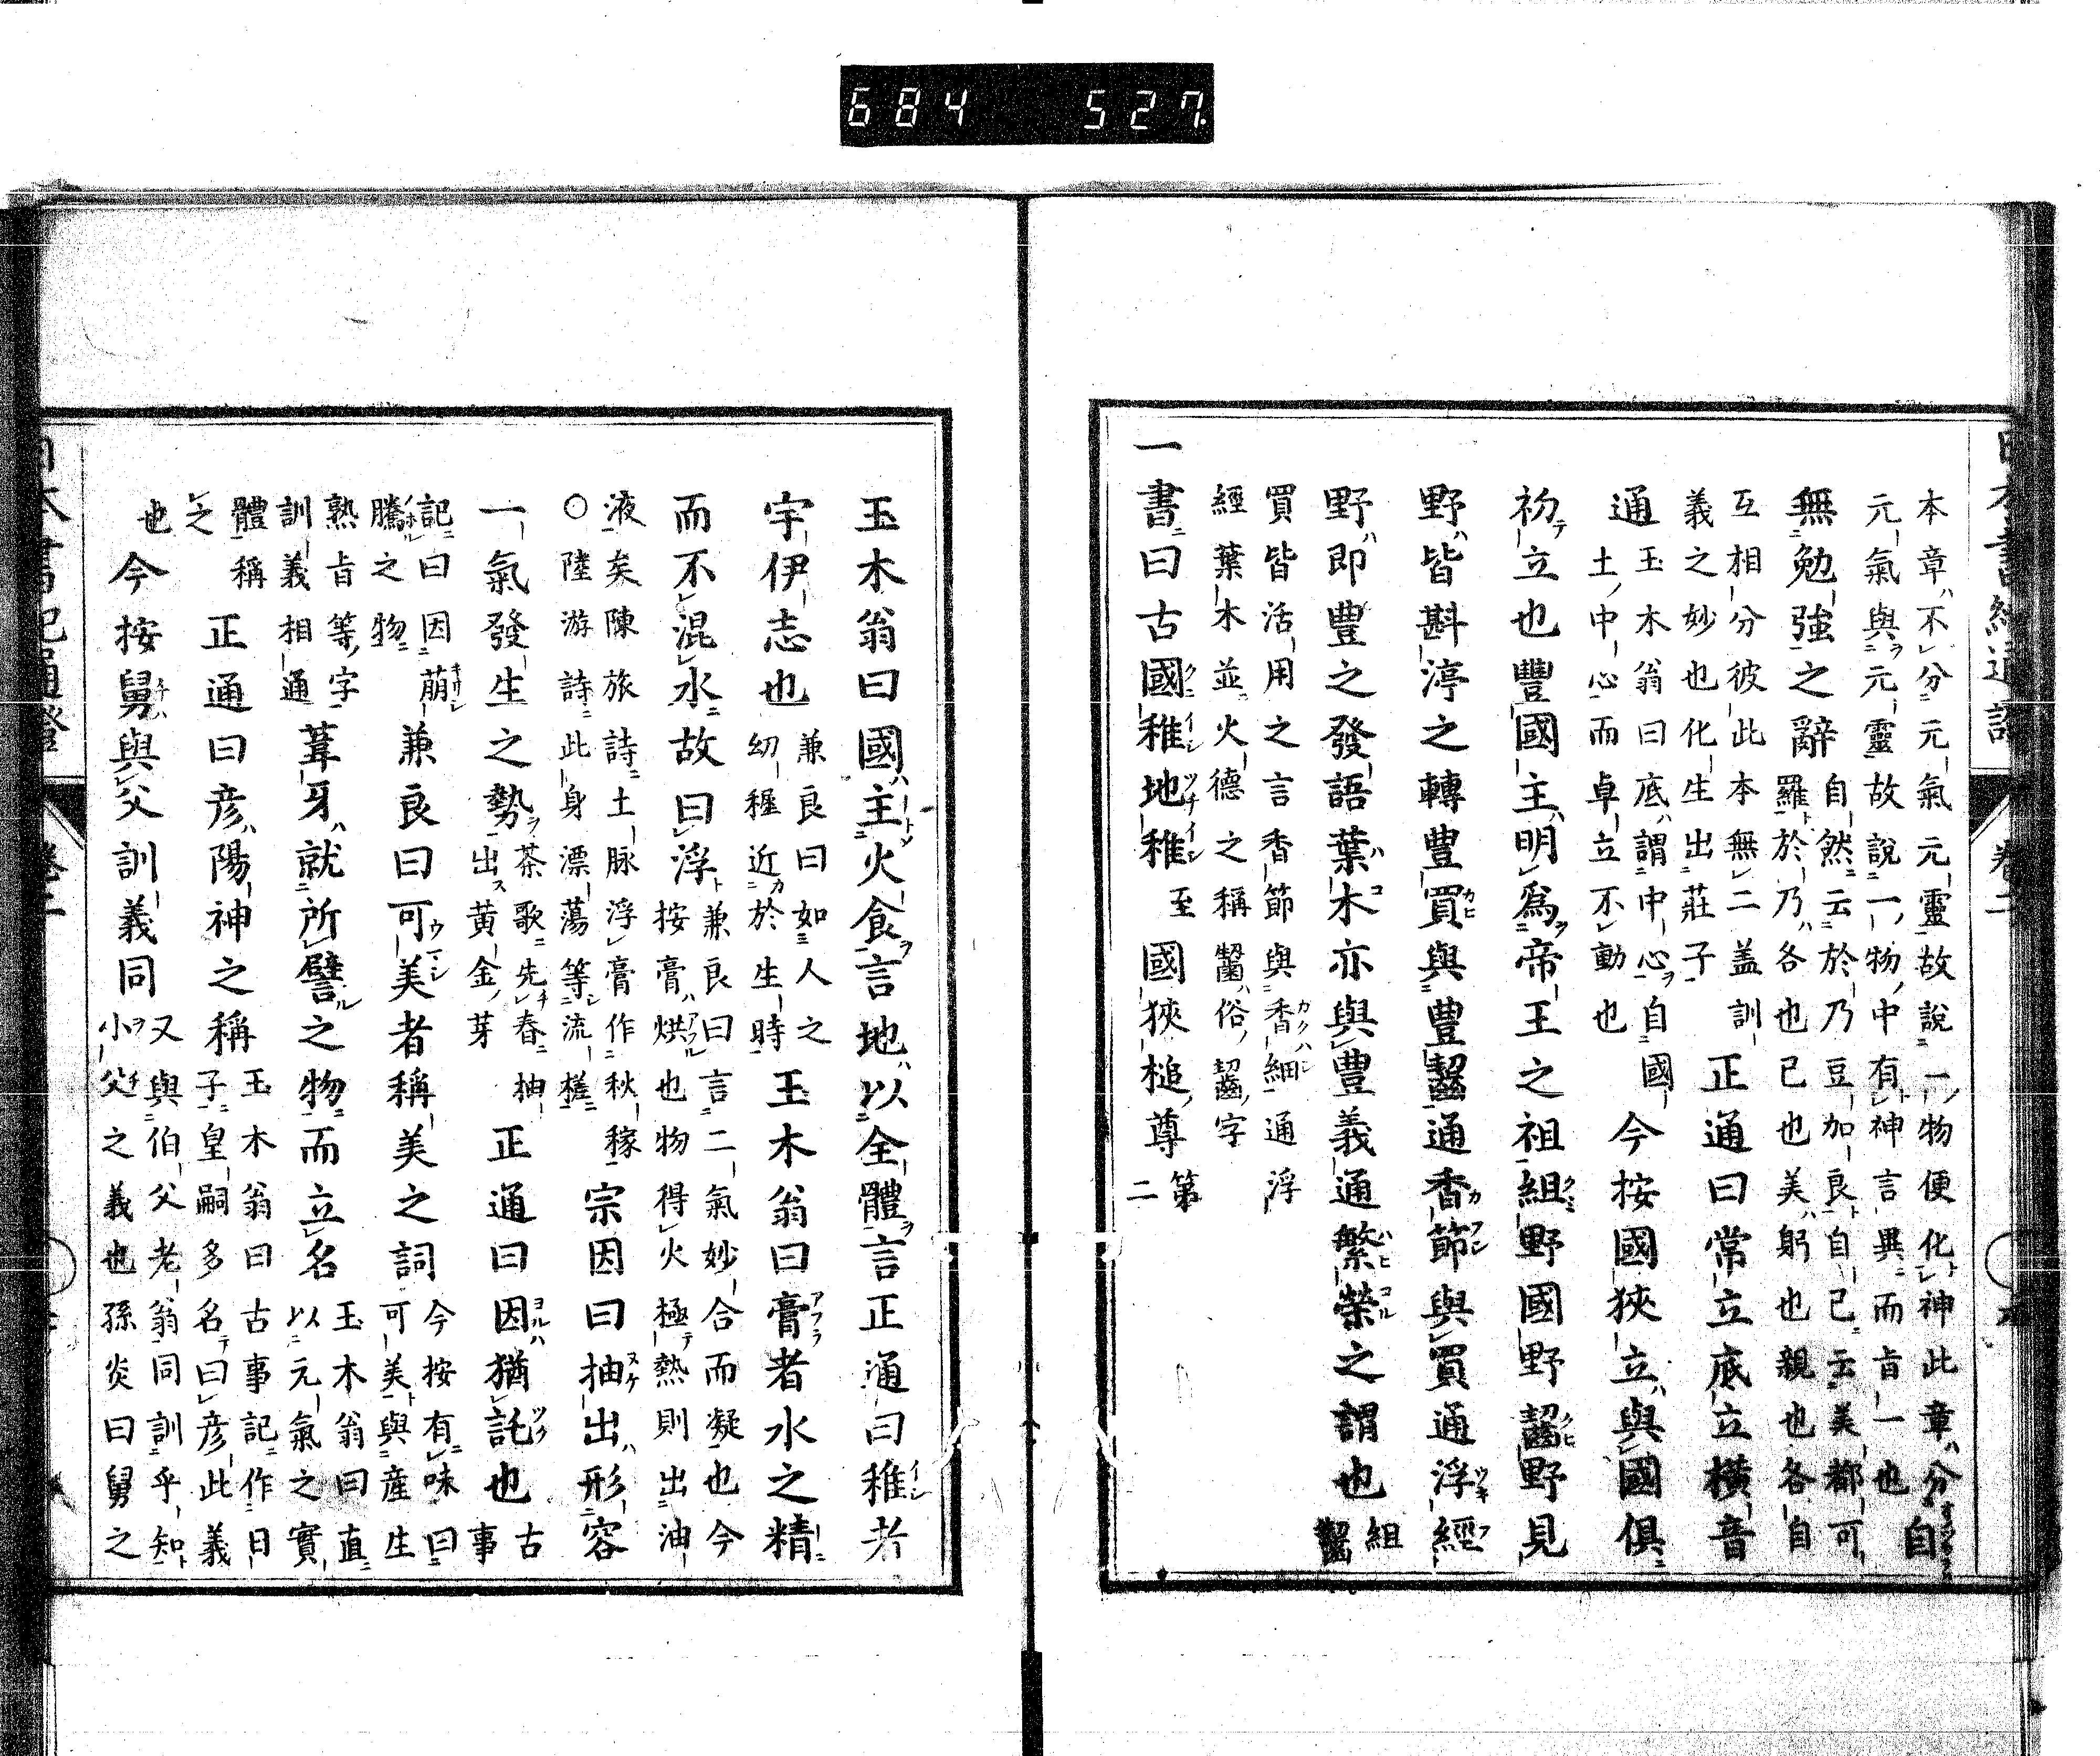 684 527.
本章不分元氣元靈故說一物便化神此章分
元氣與元靈故說一物中有神言異而旨一也自
無勉強之辭自然云於乃豆加良自己云美都可
羅於乃各也已也美躬也親也各自
互相分彼此本無二盖訓
義之妙也化生出莊子正通曰常立底立横音
通玉木翁曰底謂中心自國
土中心而卓立不動也今按國狹立與國俱
初立也豐國主明爲帝王之祖組野國野野齧野見
野皆斟渟之轉豊買與豊齧通香節與買通浮經
野即豊之發語葉木亦與豊義通繁榮之謂也組
齧
買皆活用之言香節與香細通浮
經葉木並火德之稱齧俗齧字
一書曰古國稚地稚至國狹槌尊第
二
日本書紀通證
卷二
玉木翁曰國主火食言地以全體言正通曰稚者
宇伊志也兼良曰如人之
幼穉近於生時玉木翁曰膏者水之精
而不混水故曰浮兼良曰言二氣妙合而凝也今
按膏烘也物得火極熱則出油
液矣陳旅詩土脉浮膏作秋稼
○陸游詩此身漂蕩等流槎宗因曰抽出形容
一氣發生之勢茶歌先春抽
出黄金芽正通曰因猶託也古
事
記曰因萠
騰之物兼良曰可美者稱美之詞今按有味曰
可美與産生
熟旨等字
訓義相通葦牙就所譬之物而立名玉木翁曰直
以元氣之實
體稱
之正通曰彦陽神之稱玉木翁曰古事記作日
子皇嗣多名曰彦此義
也今按舅與父訓義同又與伯父老翁同訓乎知
小父之義也孫炎曰舅之
日本書紀通證
卷二